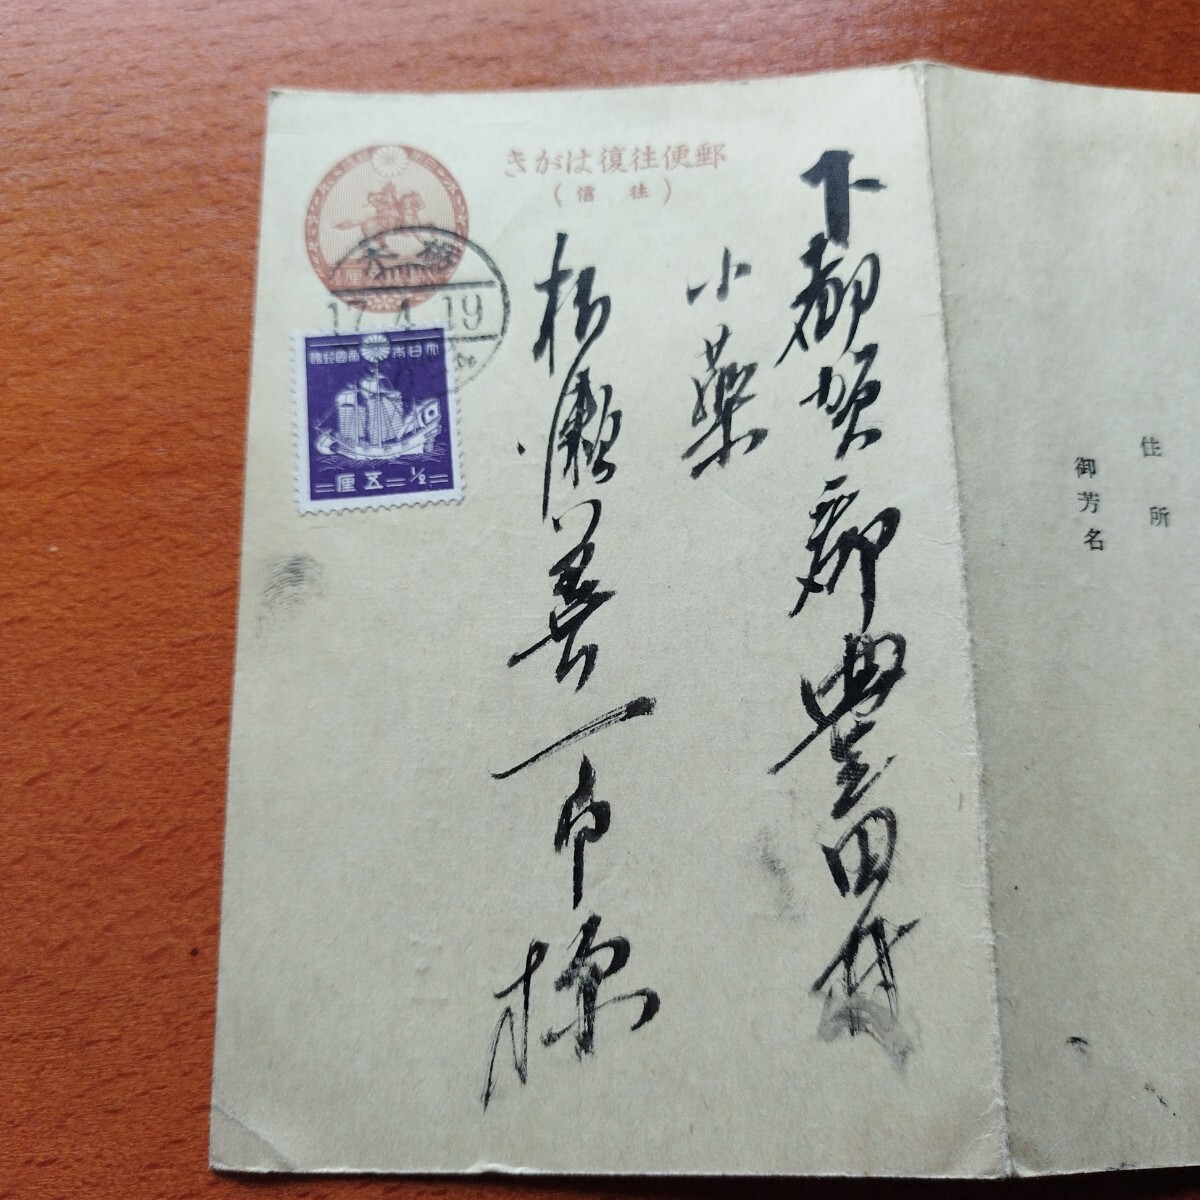 郵便往復はがき
(往信)
下都賀郡豊田村
小薬
柏瀬善一郎様
栃木
17.4.19
大日本帝國郵便
五厘
1/2
住所
御芳名